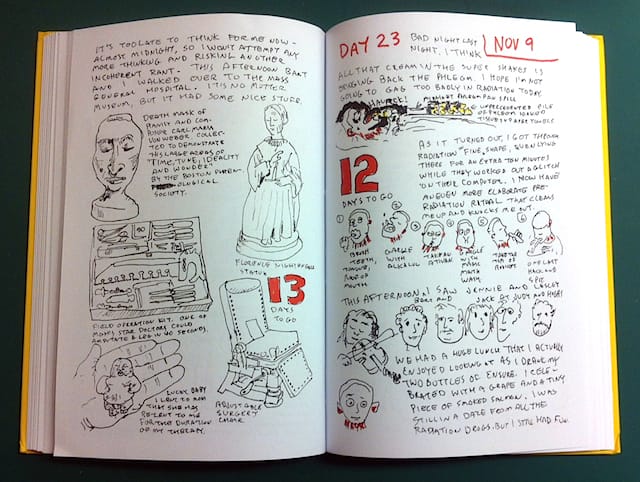 IT'S TOO LATE TO THINK FOR ME NOW-
ALMOST MIDNIGHT, SO I WON'T ATTEMPT ANY
MORE THINKING AND RISKING ANOTHER
INCOHERENT RANT. THIS AFTERNOON BART
AND I WALKED OVER TO THE MASS
GENERAL HOSPITAL. IT'S NO MÜTTER
MUSEUM, BUT IT HAD SOME NICE STUFF.
DEATH MASK OF
PIANIST AND COM-
POSER CARL MARIA
VON WEBER, COLLEC-
TED TO DEMONSTRATE
HIS LARGE AREAS OF
TIME, TUNE, IDEALITY
AND WONDER
BY THE BOSTON PHREN-
OLOGICAL
SOCIETY.
FLORENCE NIGHTINGALE
STATUE
FIELD OPERATION KIT. ONE OF
MGH'S STAR DOCTORS COULD
AMPUTATE A LEG IN 40 SECONDS.
13
DAYS
TO GO
LUCKY BABY
I LENT TO MOM
THAT SHE HAS
RE-LENT TO ME
FOR THE DURATION
OF MY THERAPY.
ADJUSTABLE
SURGERY
CHAIR
DAY 23
BAD NIGHT LAST
NIGHT. I THINK
NOV 9
ALL THAT CREAM IN THE SUPER SHAKES IS
BRINGING BACK THE PHLEGM. I HOPE I'M NOT
GOING TO GAG TOO BADLY IN RADIATION TODAY.
PHLEGM
UNPRECEDENTED PILE
OF PHLEGM SOAKED
TISSUES + PAPER TOWELS
AS IT TURNED OUT, I GOT THROUGH
RADIATION IN FINE SHAPE, EVEN LYING
THERE FOR AN EXTRA TEN MINUTES
WHILE THEY WORKED OUT A GLITCH
ON THEIR COMPUTER. I NOW HAVE
AN EVEN MORE ELABORATE PRE-
RADIATION RITUAL THAT CLEANS
ME UP AND KNOCKS ME OUT.
12
DAYS TO GO
1
2
3
4
5
6
BRUSH
TEETH,
TONGUE,
ROOF OF
MOUTH
GARGLE
WITH
ALKALOL
TAKE AN
ATIVAN
GARGLE
WITH
MAGIC
MOUTH
WASH
TAKE TWO
MORE
ATIVANS
ONE LAST
HACK AND
SPIT
THIS AFTERNOON I SAW JENNIE AND LESLEY
BART AND
JACK AT JUDY AND HUGH'S
WE HAD A HUGE LUNCH THAT I ACTUALLY
ENJOYED LOOKING AT AS I DRANK MY
TWO BOTTLES OF ENSURE. I CELE-
BRATED WITH A GRAPE AND A TINY
PIECE OF SMOKED SALMON. I WAS
STILL IN A DAZE FROM ALL THE
RADIATION DRUGS. BUT I STILL HAD FUN.